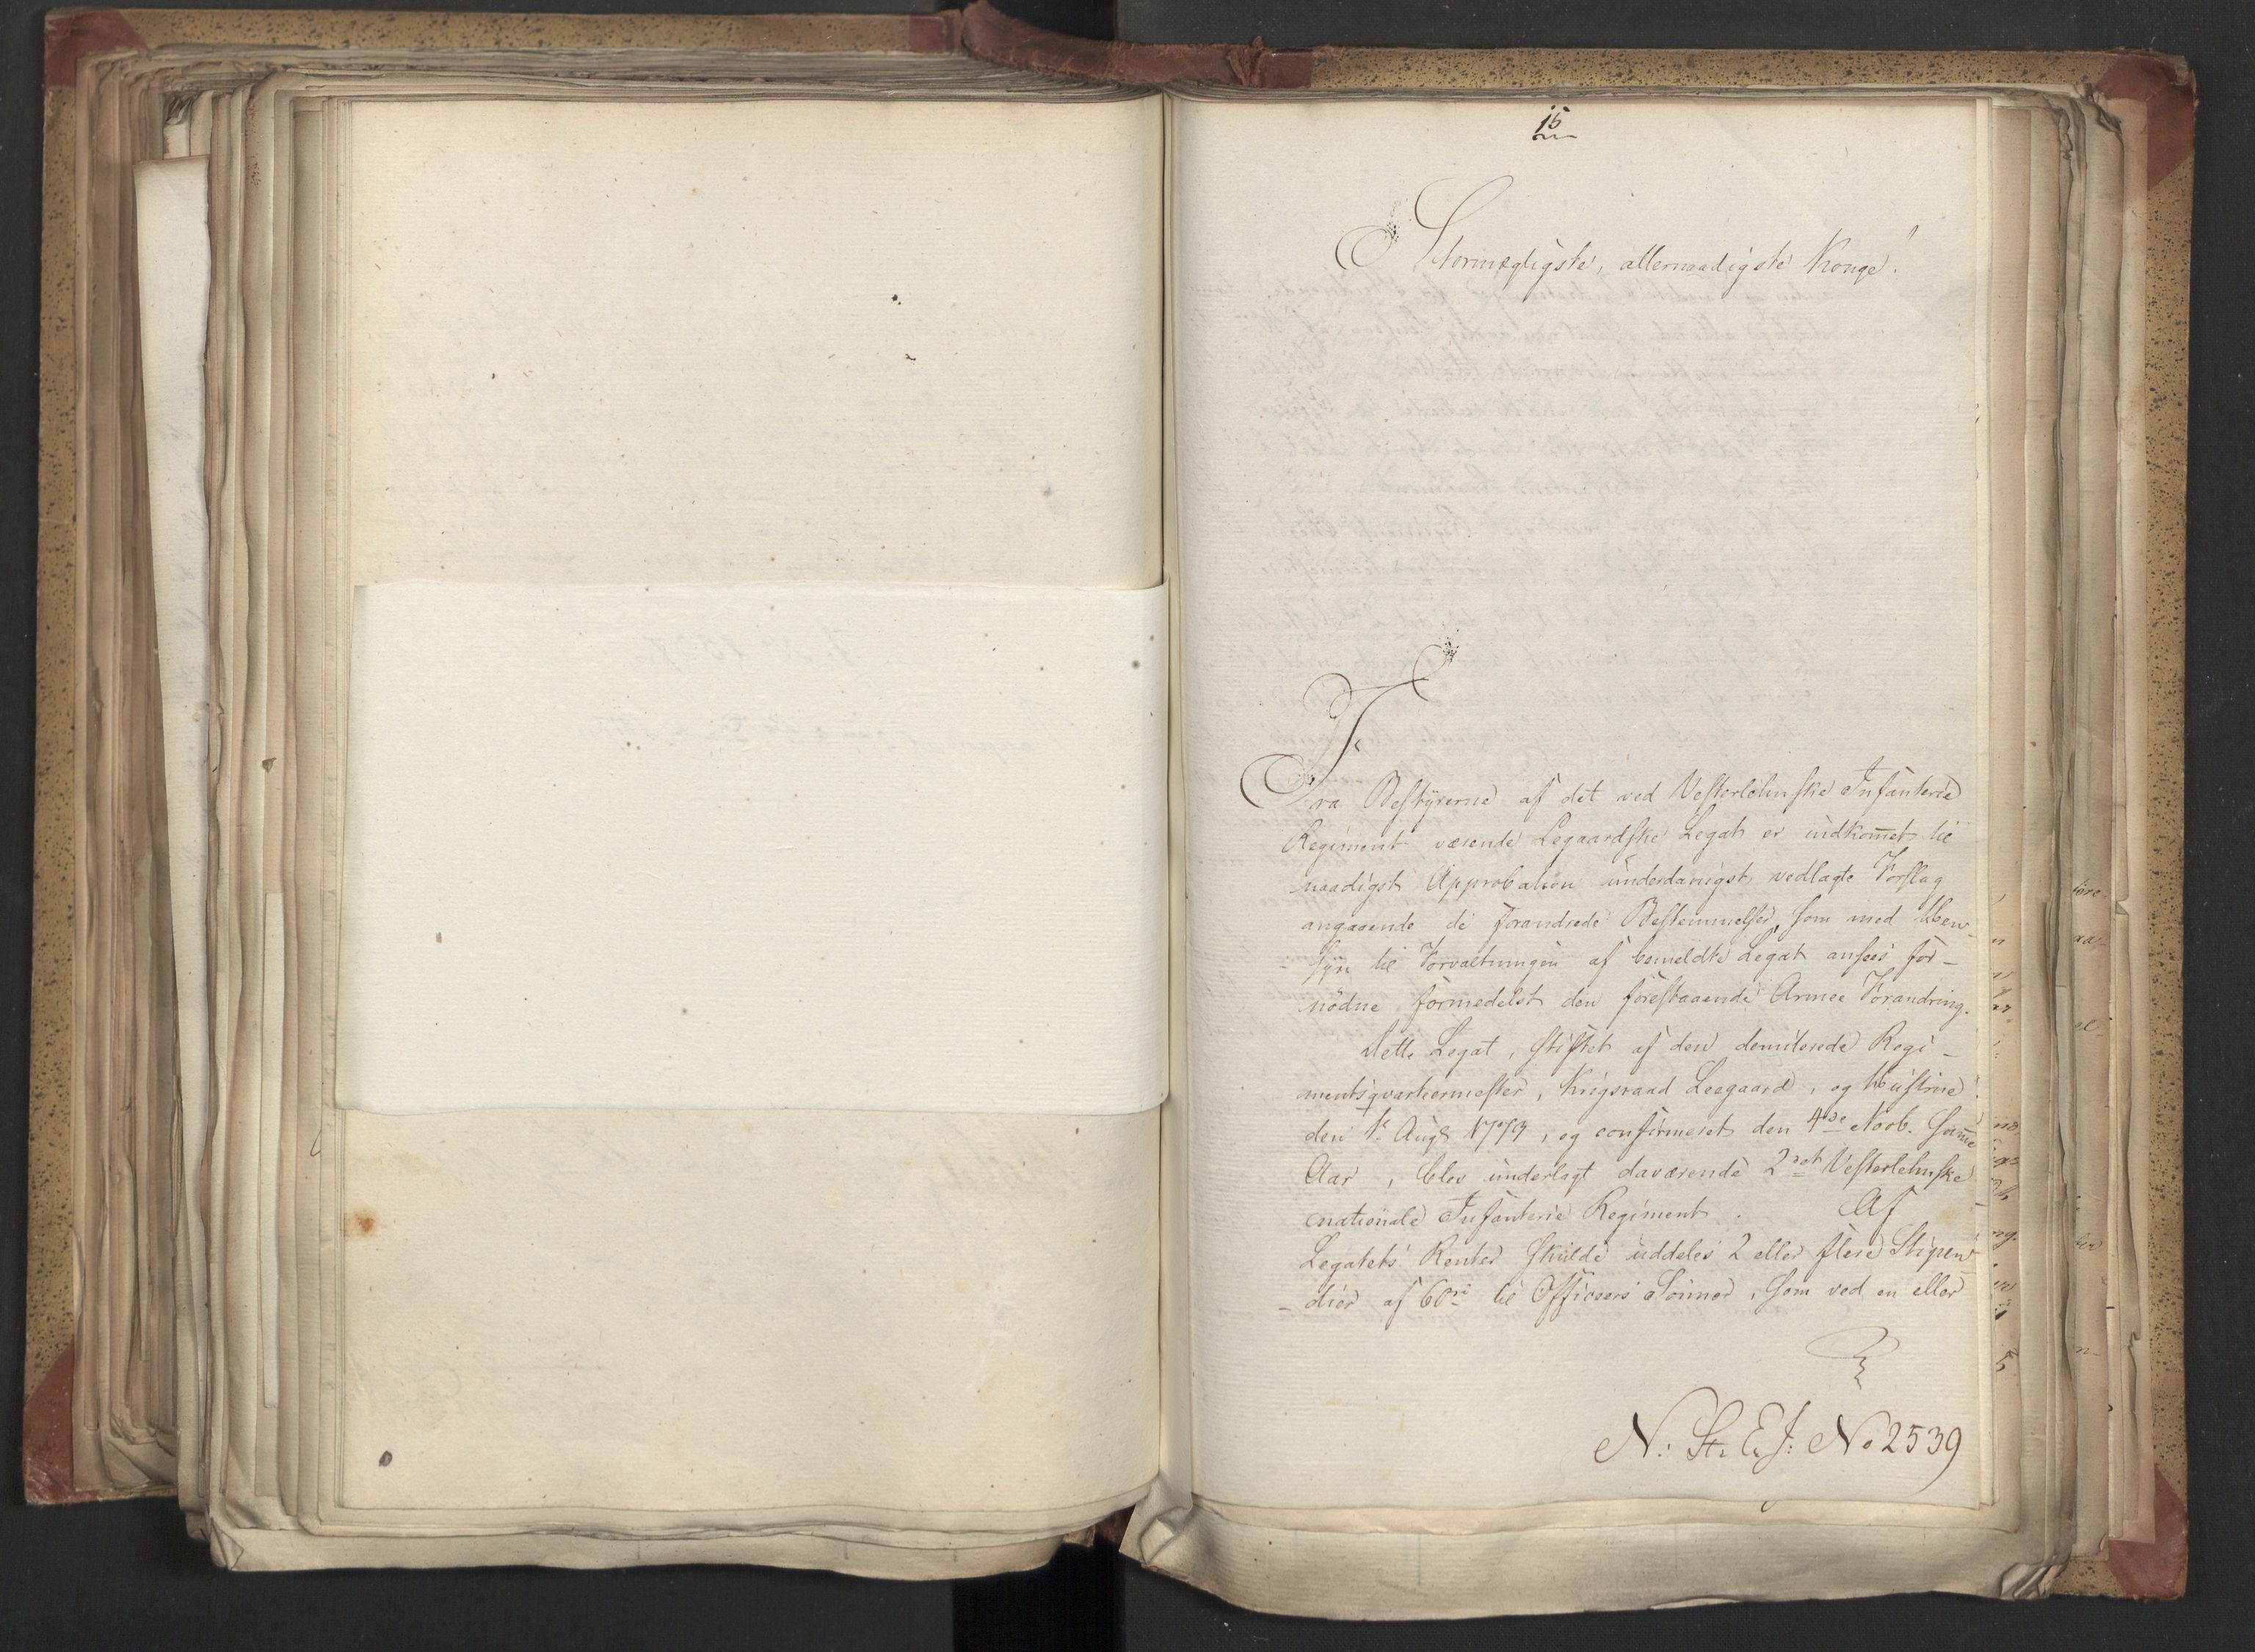 15
Stormægtigste, allernaadigste Konge!
Fra Bestyrerne af det ved Vesterlehnske Infanterie
Regiment værende Legaardske Legat er indkom̅et til
naadigst Approbation underdanigst vedlagte Forslag
angaaende de forandrede Bestemmelser, som med Hen-
syn til Forvaltningen af bemeldte Legat ansees for-
nödne formedelst den forestaaende Armee Forandring.
Dette Legat, stiftet af den demiterede Regi-
mentsqvarteermester, Krigsraad Leegaard, og Hustrue
den 1e Augs 1773, og confirmeret den 4de Novb. sam̅e
Aar, blev underlagt daværende 2det Vesterlehnske
nationale Infanterie Regiment. Af
Legatets Renter skulde uddeles 2 eller flere Stipen-
dier af 60 til Officeers Sönner, som ved en eller
N: St: E. J: No 2539